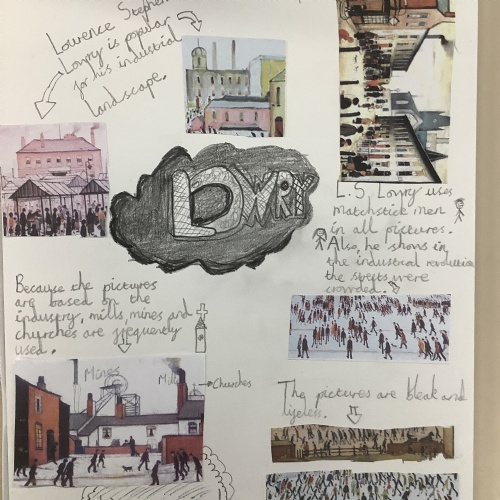 Lowrence Stephen
Lowry is popular
for his industrial
landscape.
LOWRY
L.S Lowry uses
matchstick men
in all pictures.
Also, he shows in
the industrial revolution
the streets were
crowded.
Because the pictures
are based on the
industry, mills, mines and
churches are frequently
used.
Mines
Mill
Churches
The pictures are bleak and
lifeless.